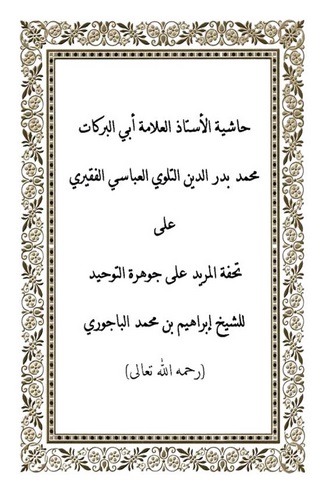 حاشية الأستاذ العلامة أبي البركات
محمد بدر الدين التلوي العباسي الفقيري
على
تحفة المريد على جوهرة التوحيد
للشيخ إبراهيم بن محمد الباجوري
(رحمه الله تعالى)